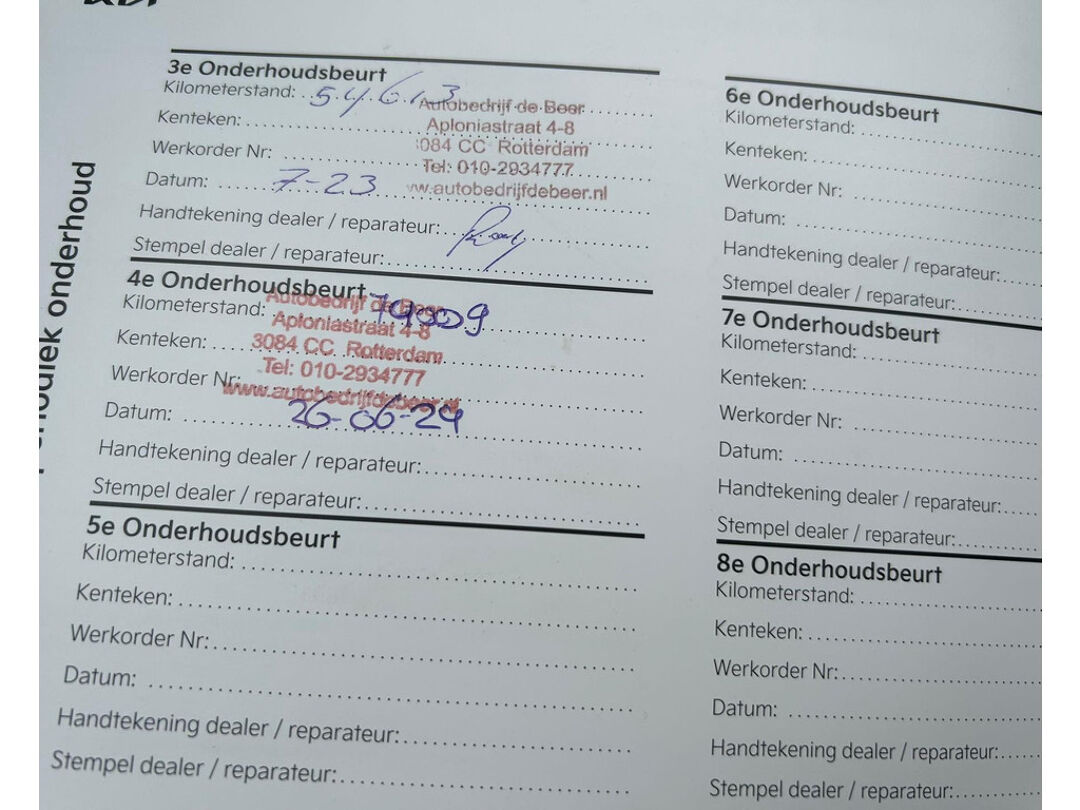 3e Onderhoudsbeurt
Kilometerstand: 54.613
Autobedrijf de Beer
Kenteken:
Aploniastraat 4-8
Werkorder Nr:
3084 CC Rotterdam
Tel: 010-2934777
Datum: 7-23
www.autobedrijfdebeer.nl
Handtekening dealer / reparateur:
Stempel dealer / reparateur:
4e Onderhoudsbeurt
Autobedrijf de Beer
Kilometerstand: 79009
Aploniastraat 4-8
Kenteken:
3084 CC Rotterdam
Tel: 010-2934777
Werkorder Nr:
www.autobedrijfdebeer.nl
Datum: 26-06-24
Handtekening dealer / reparateur:
Stempel dealer / reparateur:
5e Onderhoudsbeurt
Kilometerstand:
Kenteken:
Werkorder Nr:
Datum:
Handtekening dealer / reparateur:
Stempel dealer / reparateur:
6e Onderhoudsbeurt
Kilometerstand:
Kenteken:
Werkorder Nr:
Datum:
Handtekening dealer / reparateur:
Stempel dealer / reparateur:
7e Onderhoudsbeurt
Kilometerstand:
Kenteken:
Werkorder Nr:
Datum:
Handtekening dealer / reparateur:
Stempel dealer / reparateur:
8e Onderhoudsbeurt
Kilometerstand:
Kenteken:
Werkorder Nr:
Datum:
Handtekening dealer / reparateur:
Stempel dealer / reparateur:
onderhoud